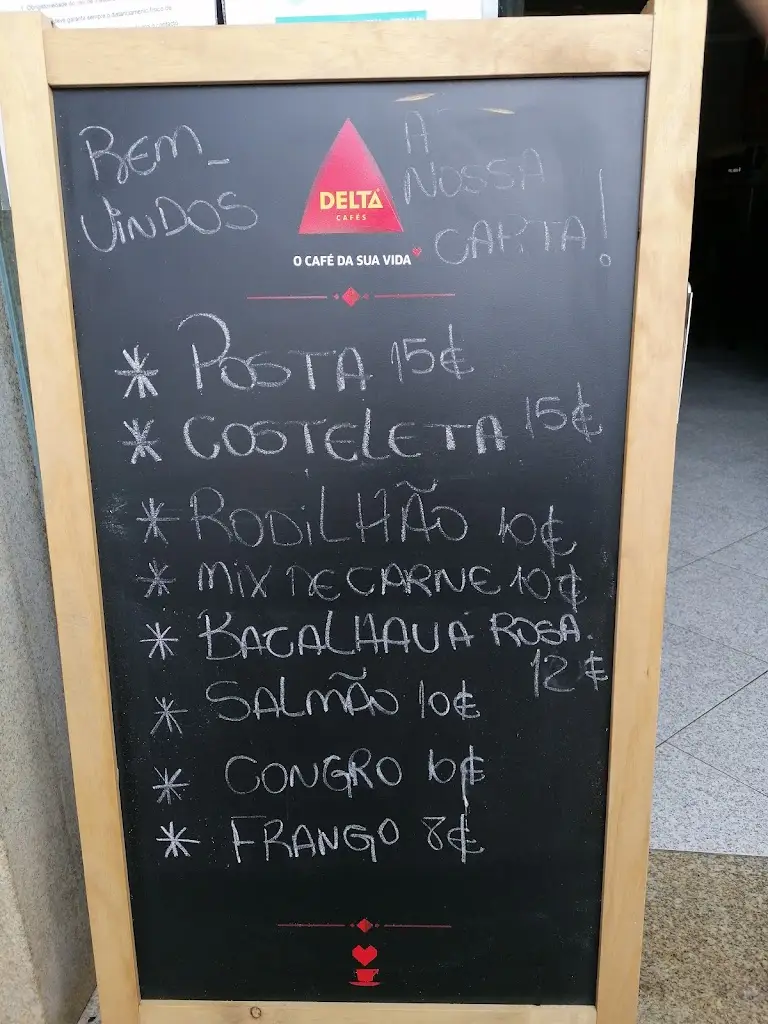 BEM-
VINDOS
A
NOSSA
CARTA!
DELTA
CAFÉS
O CAFÉ DA SUA VIDA
* POSTA 15€
* COSTELETA 15€
* RODILHÃO 10€
* MIX DE CARNE 10€
* BACALHAU A ROSA.
12€
* SALMÃO 10€
* CONGRO 10€
* FRANGO 8€